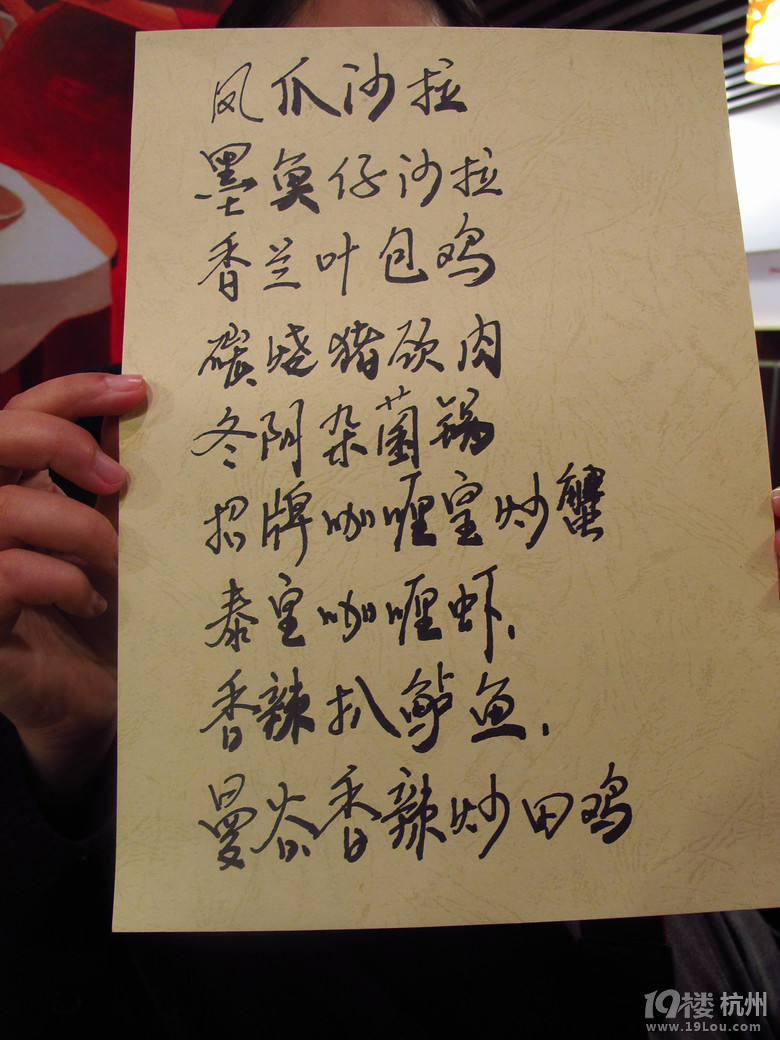 凤爪沙拉
墨鱼仔沙拉
香兰叶包鸡
碳烧猪颈肉
冬阴杂菌锅
招牌咖喱皇炒蟹
泰皇咖喱虾.
香辣扒鲈鱼.
曼谷香辣炒田鸡
19楼 杭州
www.19Lou.com